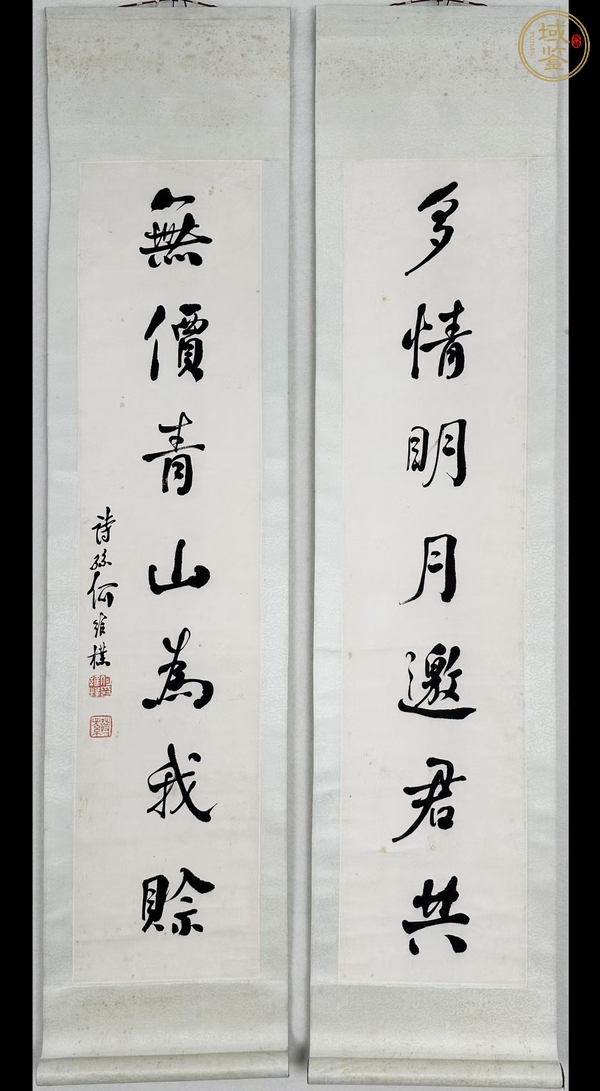 多情明月邀君共
無價青山為我賒
詩孫何維樸
域鑒